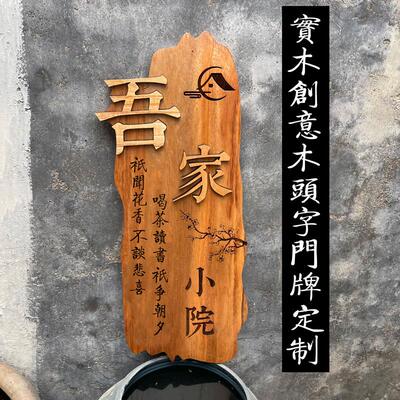 實木創意木頭字門牌定制
吾家小院
喝茶讀書祇爭朝夕
祇聞花香不談悲喜